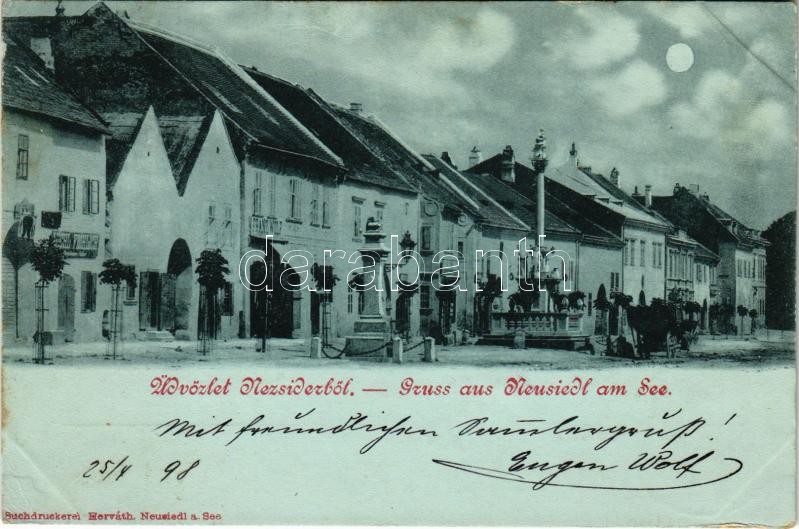 darabanth
Üdvözlet Nezsiderből. — Gruss aus Neusiedl am See.
Mit freundlichen Sam̅lergruß!
25/4 98
Eugen Wolf
Buchdruckerei Horváth, Neusiedl a. See